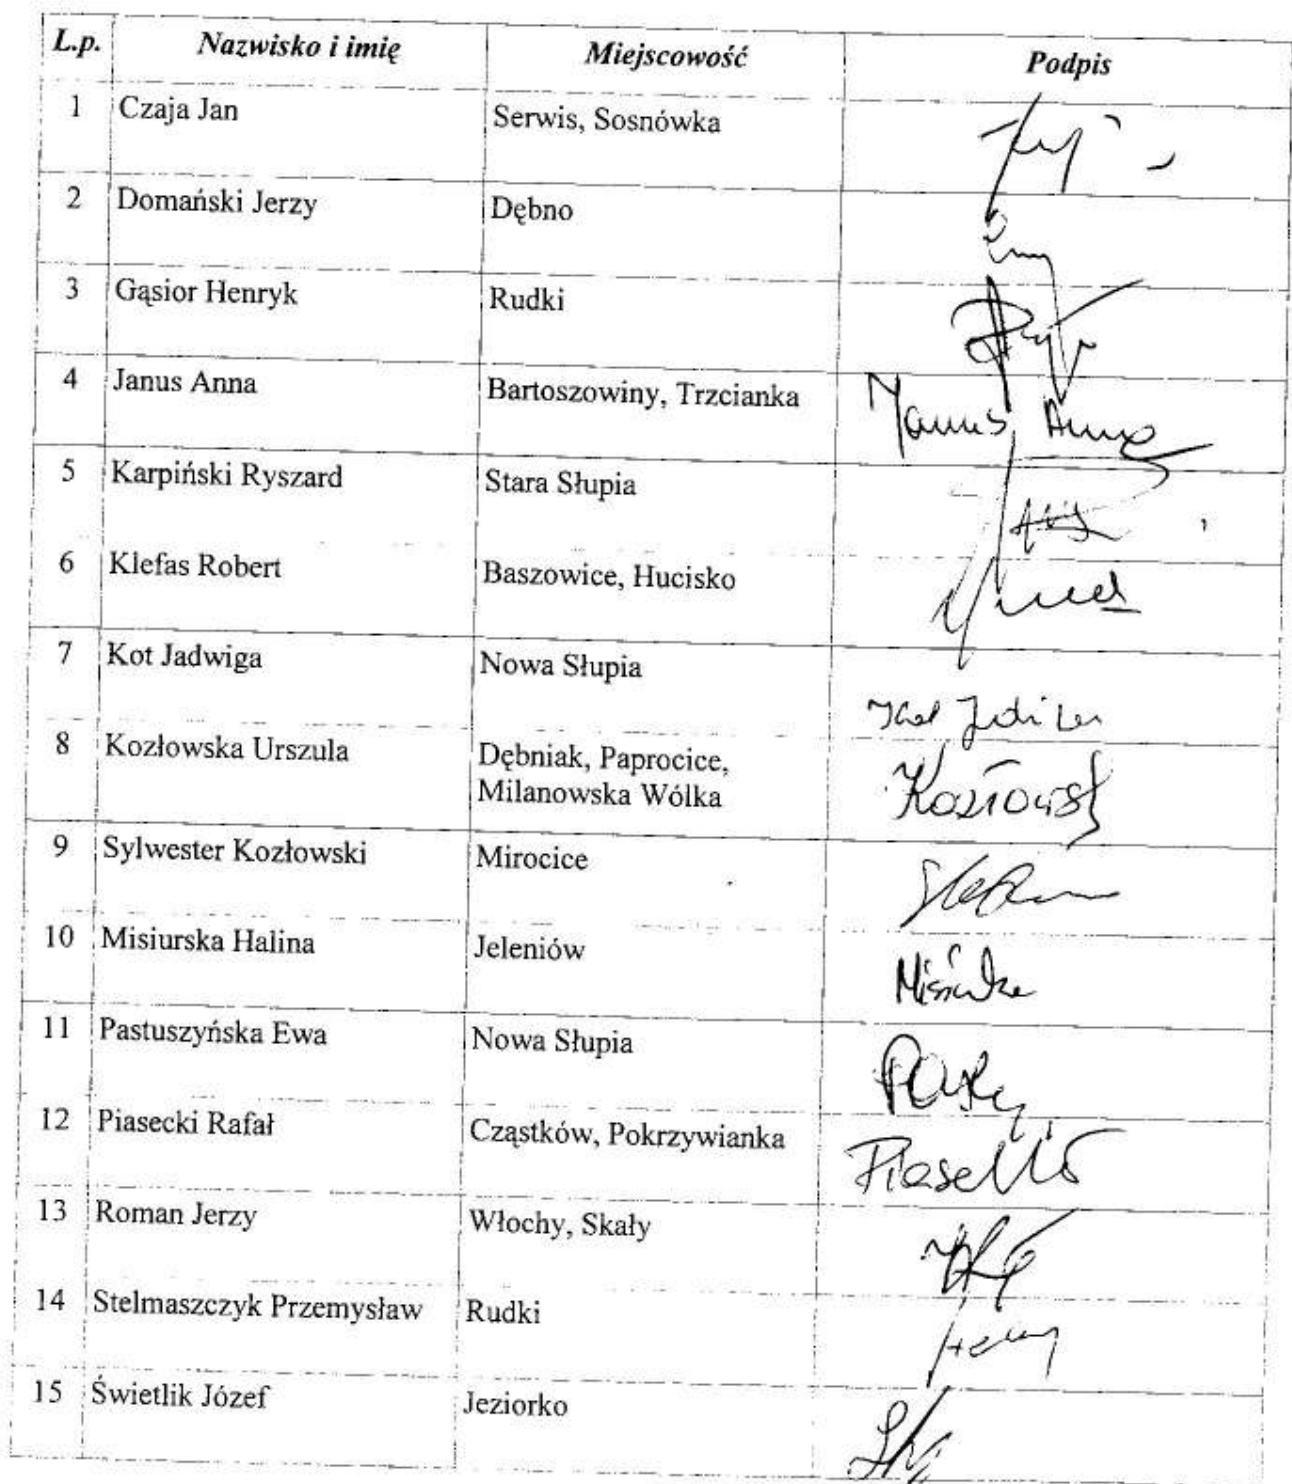 L.p. Nazwisko i imię Miejscowość Podpis
1 Czaja Jan Serwis, Sosnówka
2 Domański Jerzy Dębno
3 Gąsior Henryk Rudki
4 Janus Anna Bartoszowiny, Trzcianka Janus Anna
5 Karpiński Ryszard Stara Słupia
6 Klefas Robert Baszowice, Hucisko
7 Kot Jadwiga Nowa Słupia
8 Kozłowska Urszula Dębniak, Paprocice,
Milanowska Wólka
9 Sylwester Kozłowski Mirocice
10 Misiurska Halina Jeleniów
11 Pastuszyńska Ewa Nowa Słupia
12 Piasecki Rafał Cząstków, Pokrzywianka
13 Roman Jerzy Włochy, Skały
14 Stelmaszczyk Przemysław Rudki
15 Świetlik Józef Jeziorko